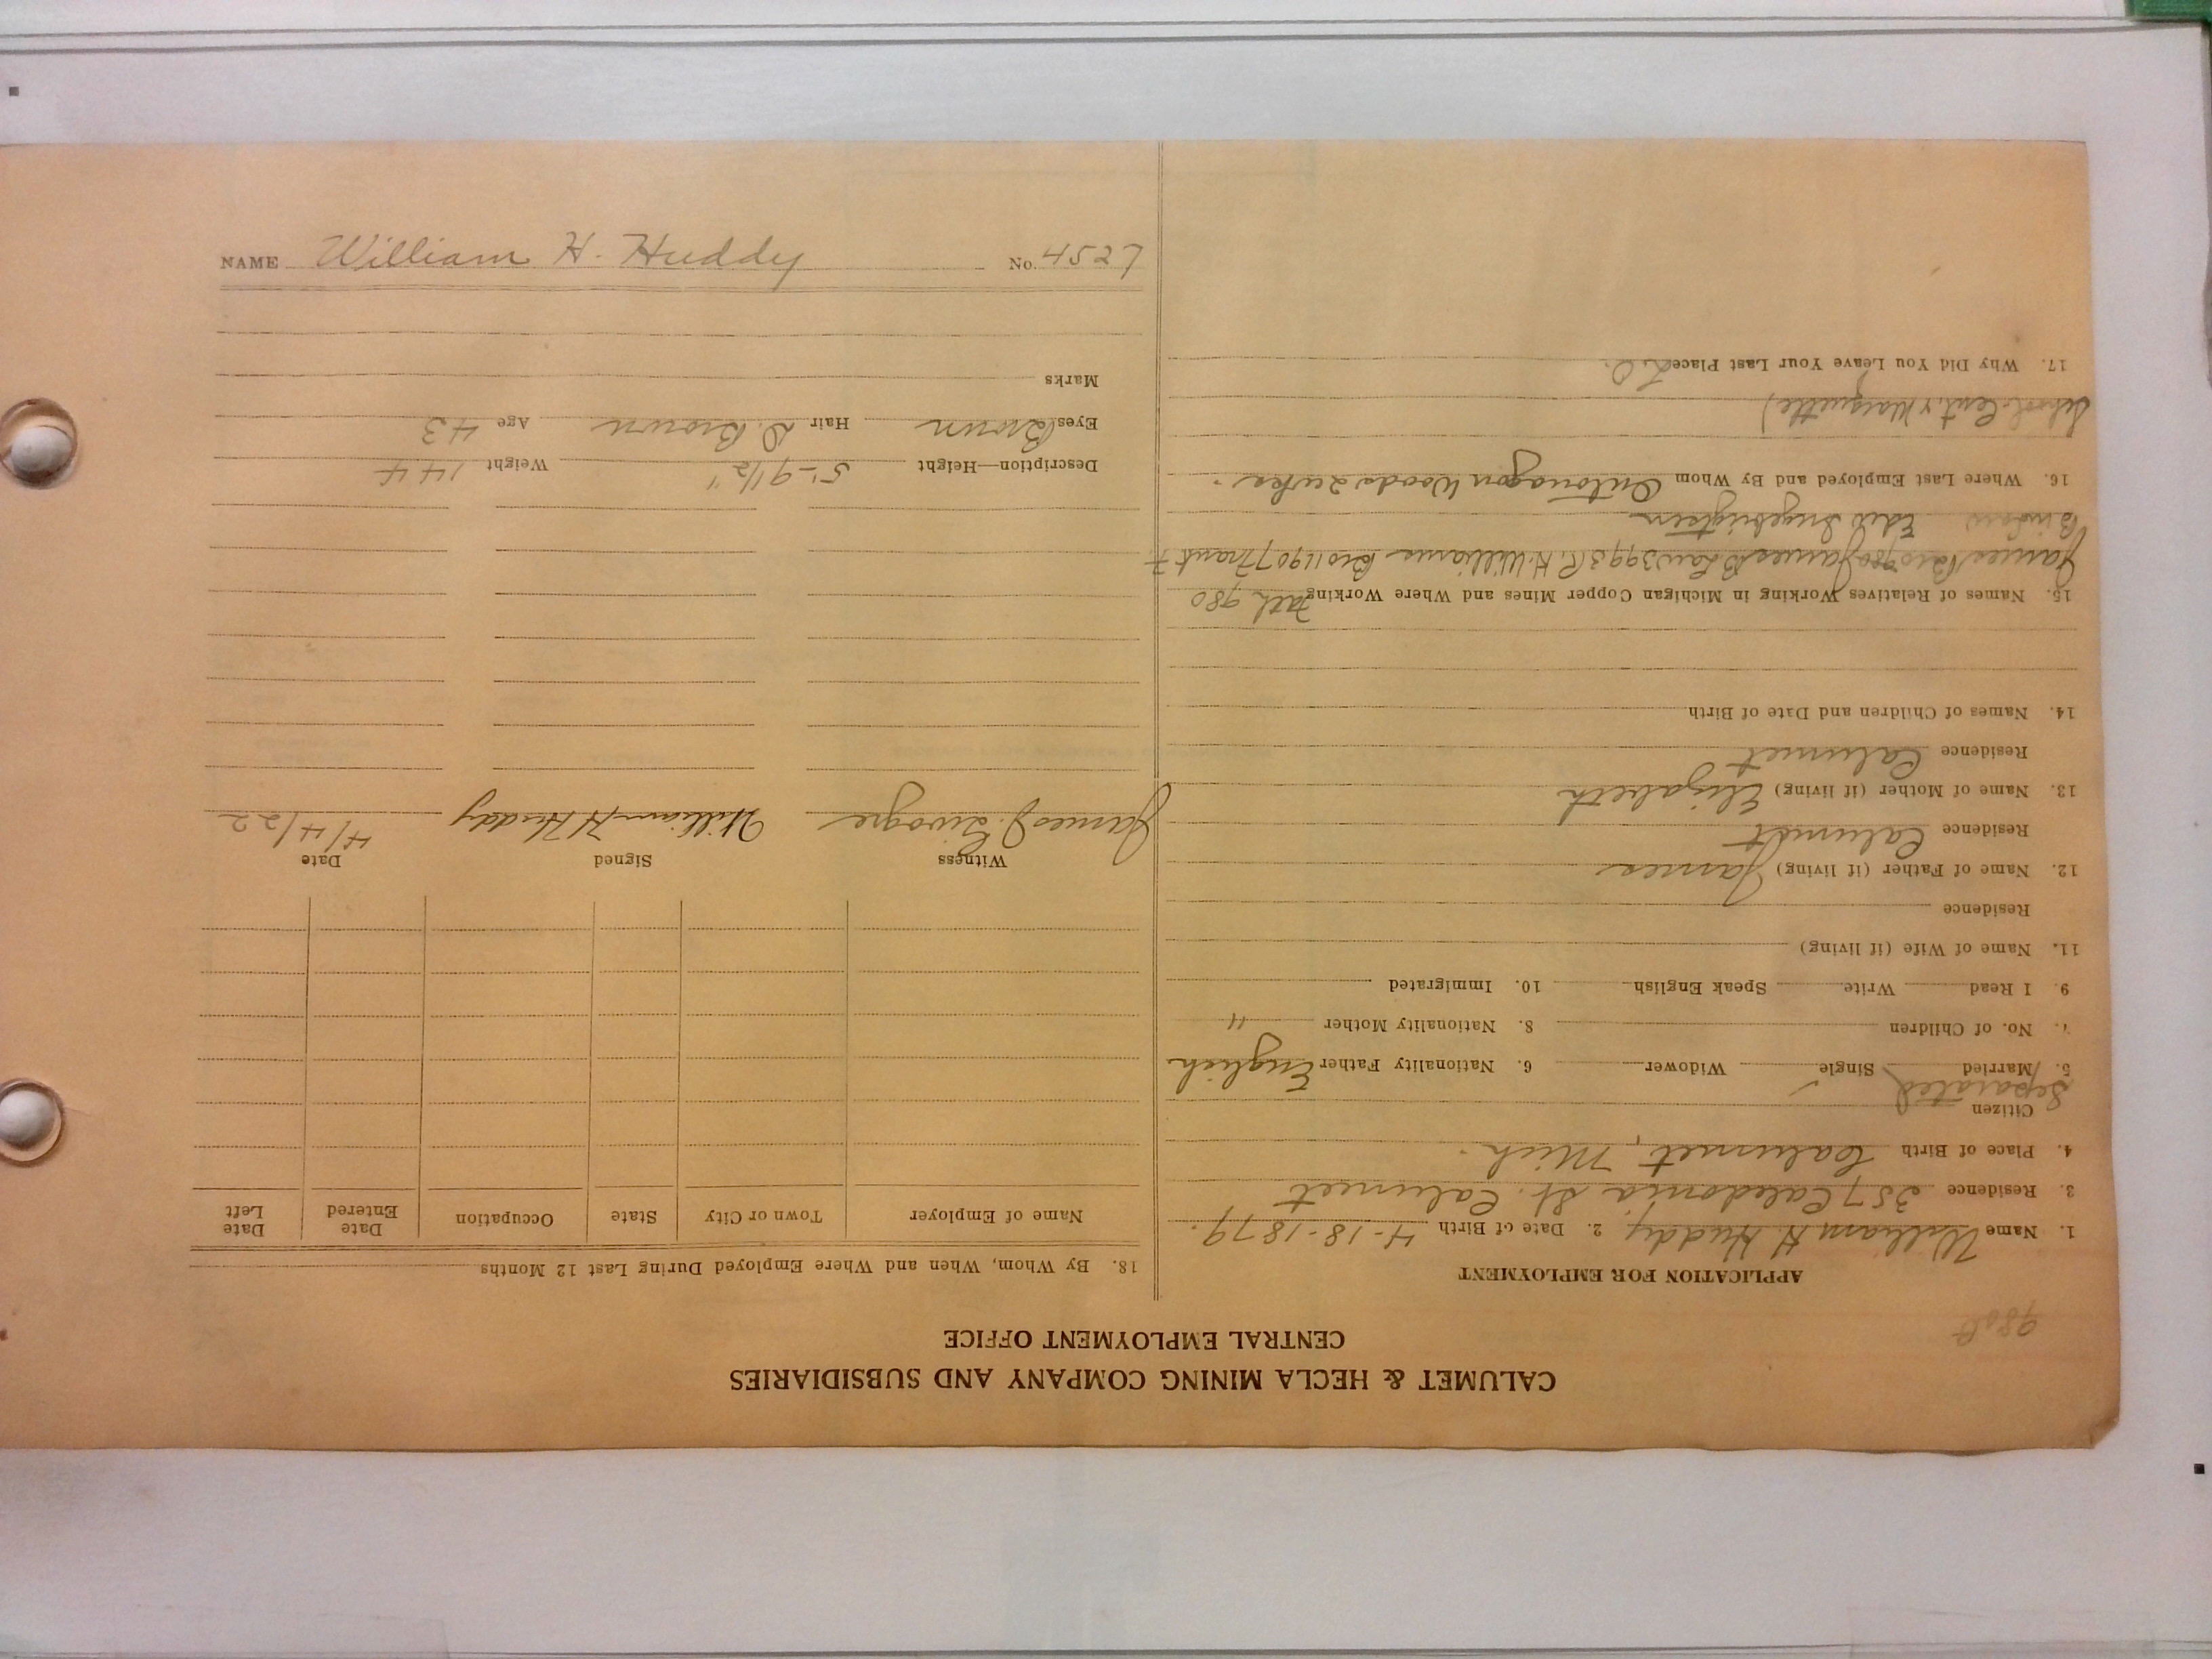 NAME William H. Huddy No. 4527
CALUMET & HECLA MINING COMPANY AND SUBSIDIARIES
CENTRAL EMPLOYMENT OFFICE
APPLICATION FOR EMPLOYMENT
1. Name William H Huddy 2. Date of Birth 4-18-1879.
3. Residence 357 Caledonia St. Calumet
4. Place of Birth Calumet, Mich.
Citizen
Separated
5. Married Single Widower 6. Nationality Father English
7. No. of Children 8. Nationality Mother "
9. I Read Write Speak English 10. Immigrated
11. Name of Wife (if living)
Residence
12. Name of Father (if living) James
Residence Calumet
13. Name of Mother (if living) Elizabeth
Residence Calumet
14. Names of Children and Date of Birth
15. Names of Relatives Working in Michigan Copper Mines and Where Working 980
James Bro 980 James B Law 3993 R. H. Williams Bro 11907
16. Where Last Employed and By Whom Ontonagon Woods
School Cent. & Marquette)
17. Why Did You Leave Your Last Place L.O.
18. By Whom, When and Where Employed During Last 12 Months
Name of Employer Town or City State Occupation Date Entered Date Left
Witness Signed Date
James J. William H Huddy 4/4/22
Description—Height 5'-9 1/2" Weight 144
Eyes Brown Hair D. Brown Age 43
Marks